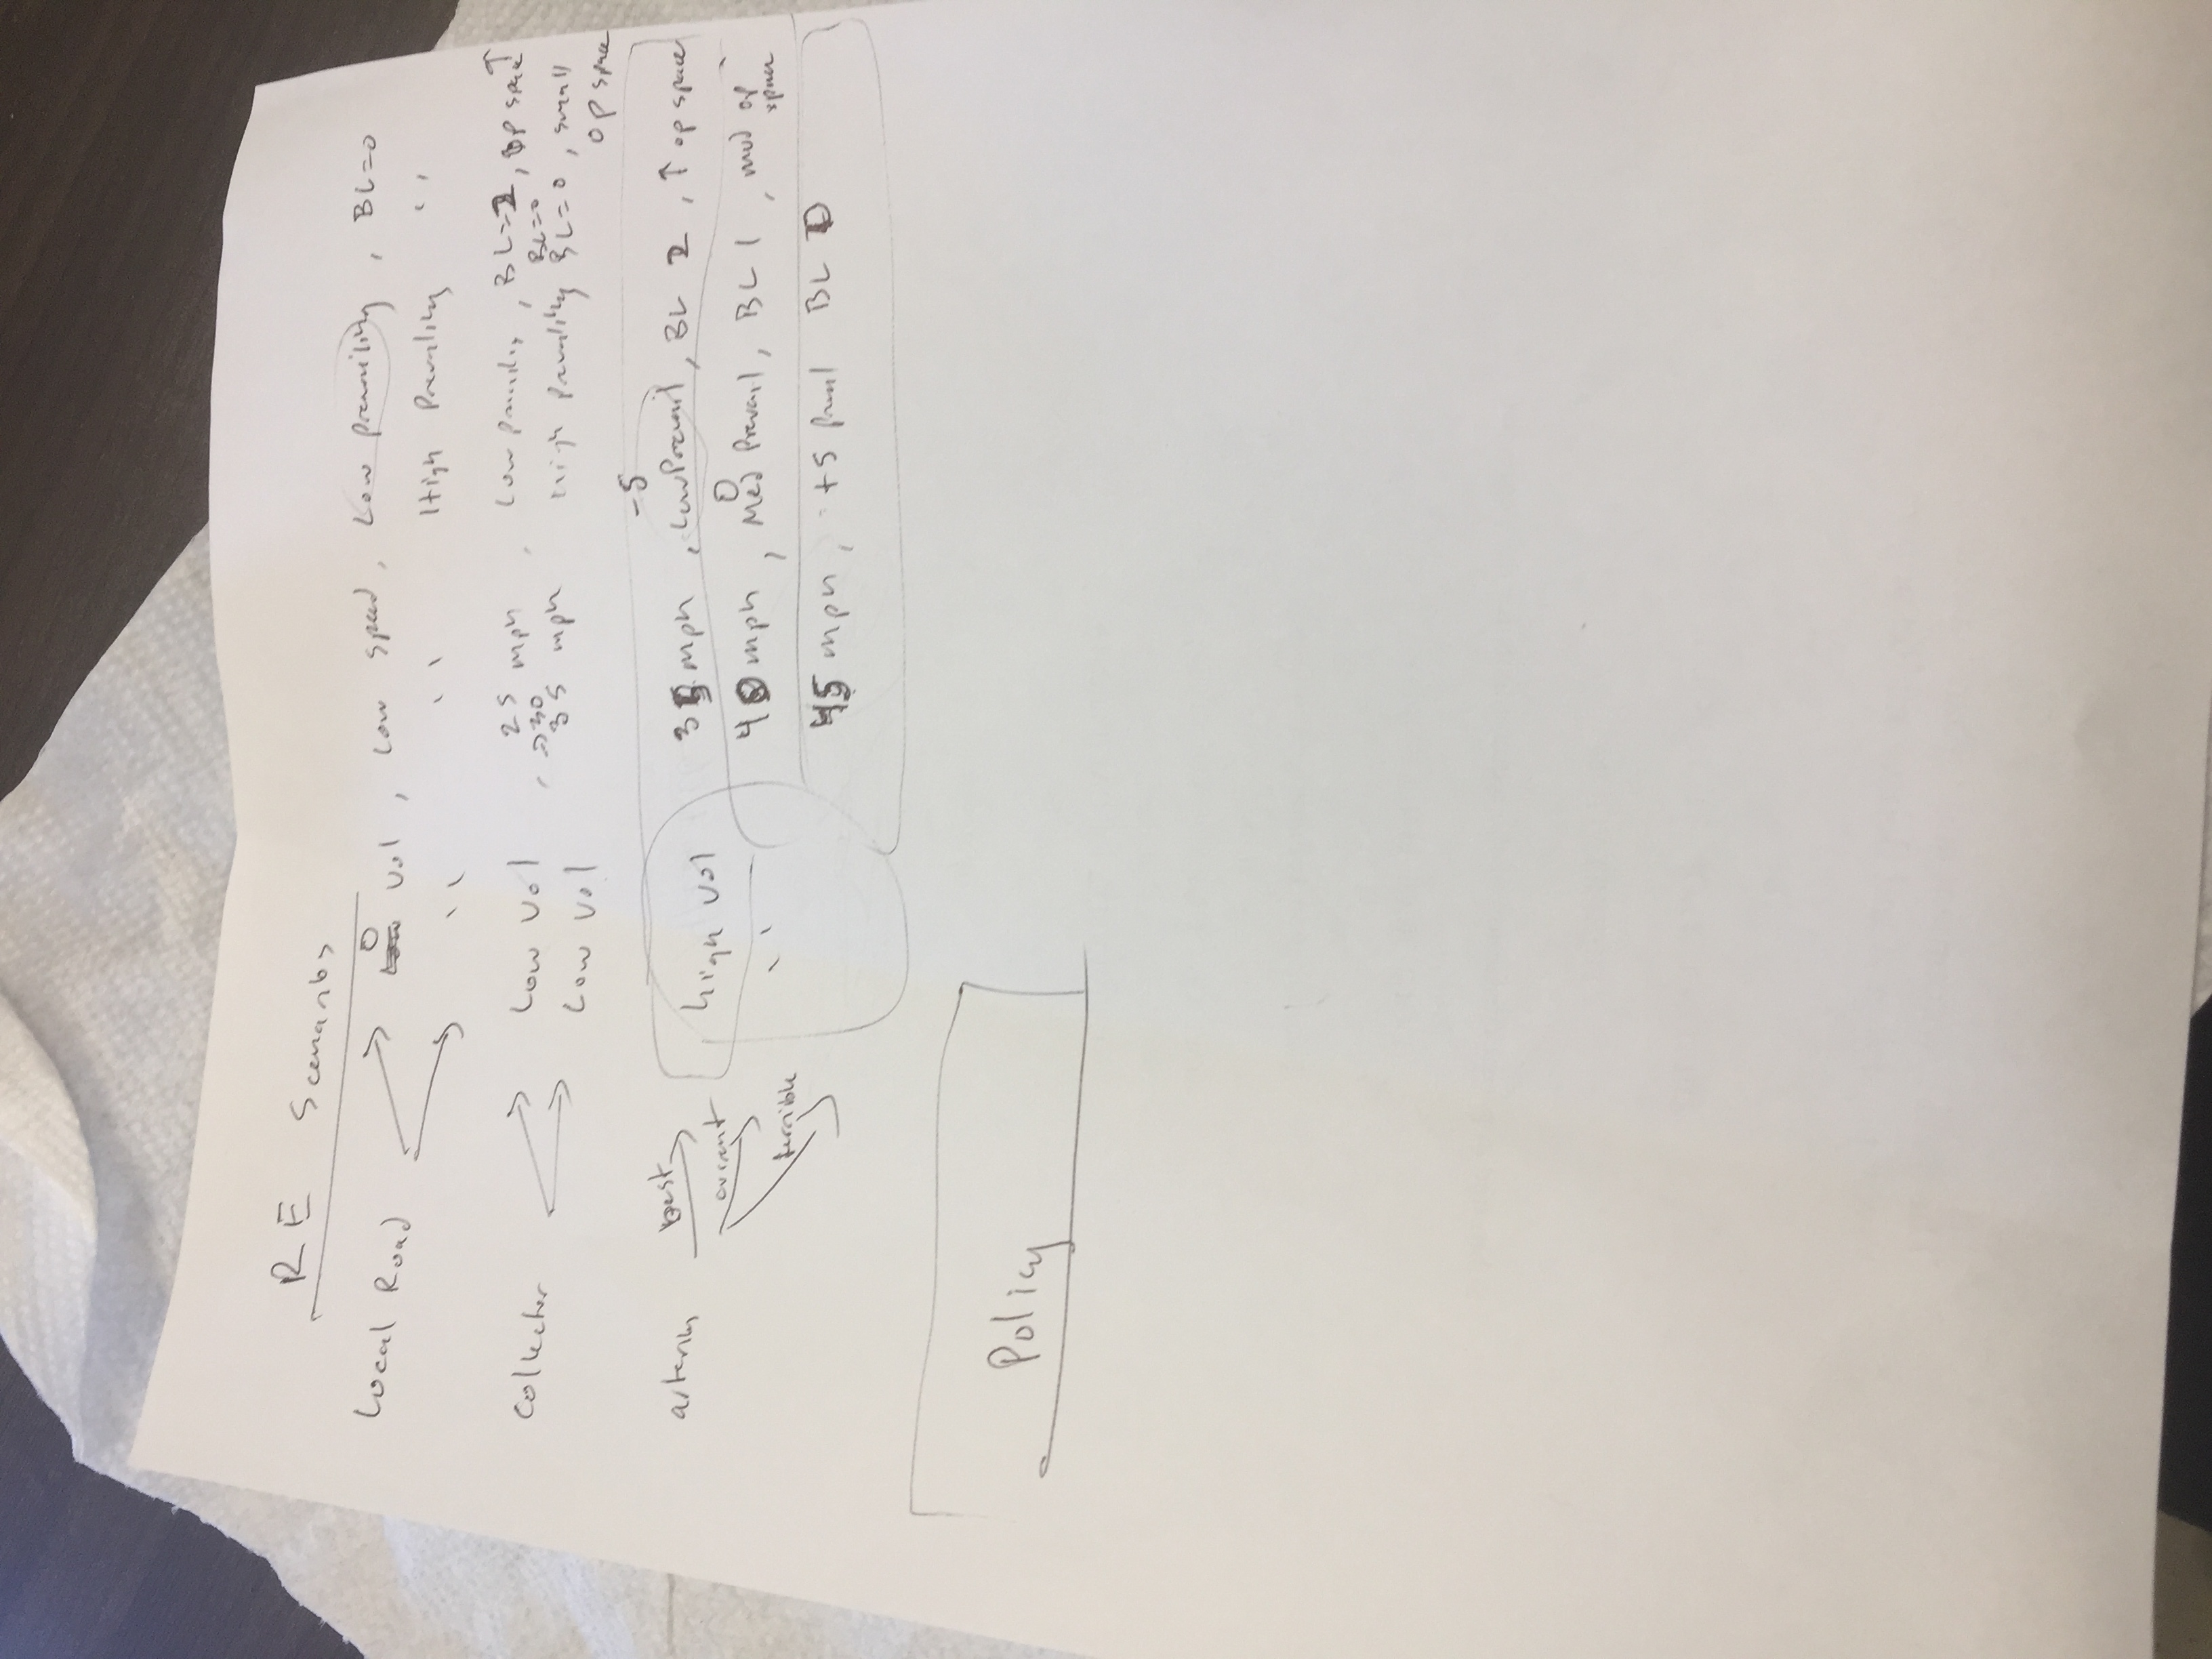 RE Scenarios
Local Road 0 Vol, Low speed, Low prevailing, BL=0
" " High Prevailing "
Collector Low Vol, 25 mph, Low prevailing, BL=2, op space ↑
→30 BL=0
Low Vol 35 mph High prevailing BL=0, small
op space
-5
arterial best high vol 35 mph, Low Prevail, BL 2, ↑ op space
current " 40 mph, 0 Med Prevail, BL 1, mod op
space
terrible 45 mph, +5 BL 0
Policy